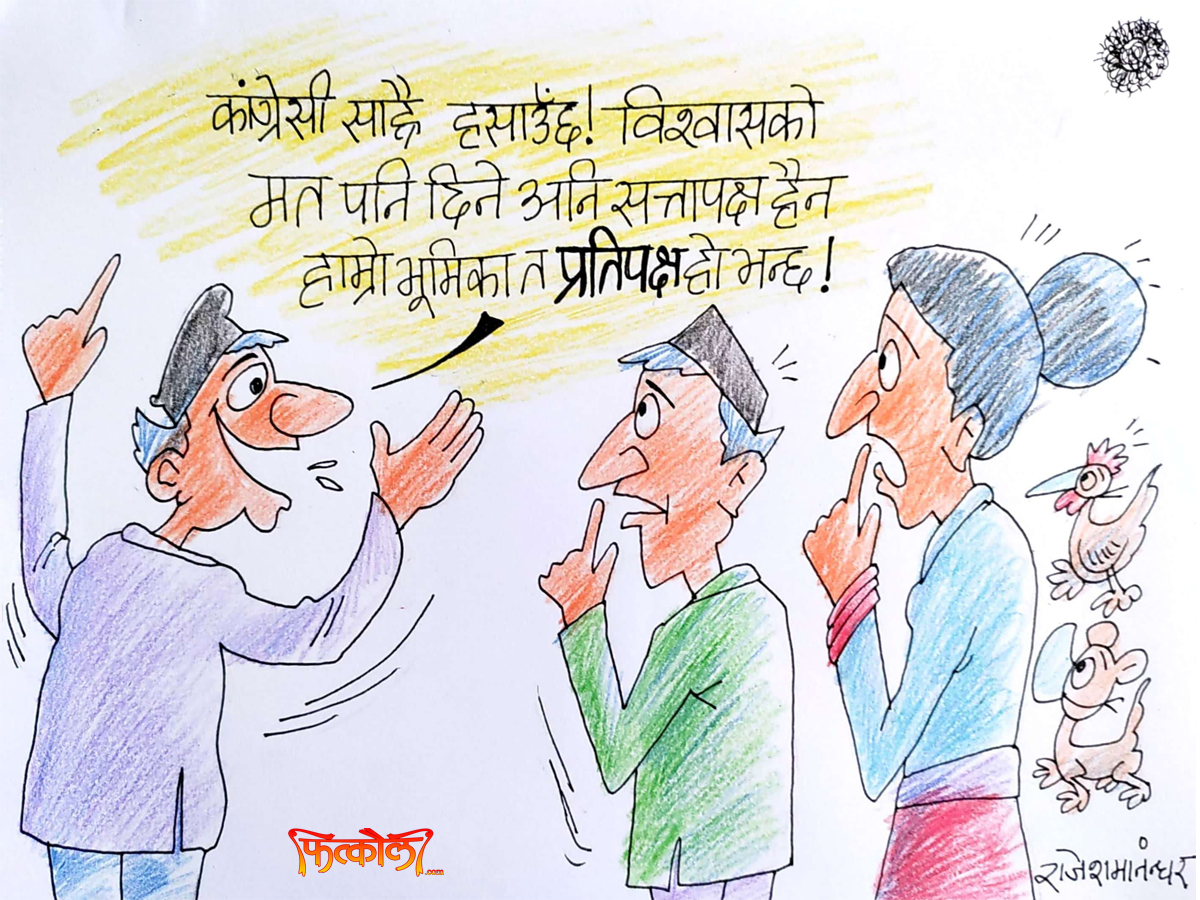 कांग्रेसी साह्रै हसाउँछ! विश्वासको
मत पनि दिने अनि सत्तापक्ष हैन
हाम्रो भूमिका त प्रतिपक्ष हो भन्छ!
फित्कौली.com
राजेशमानन्धर